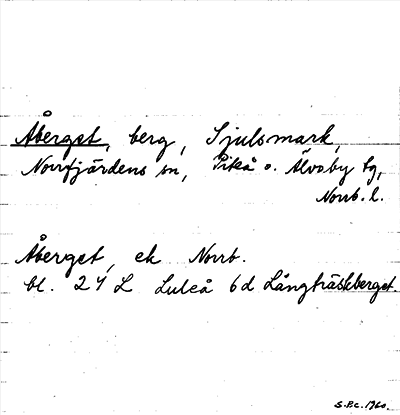 Åberget, berg, Sjulsmark,
Norrfjärdens sn, Piteå o. Älvsby tg,
Norrb. l.
Åberget, ek Norrb.
bl. 24 L Luleå 6d Långträskberget.
S.P.c. 1960.